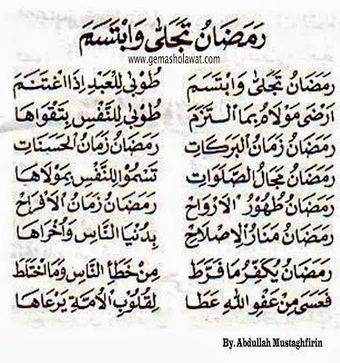 رَمَضَانُ تَجَلَّى وَابْتَسَمَ
www.gemasholawat.com
رَمَضَانُ تَجَلَّى وَابْتَسَمَ طُوْبَى لِلْعَبْدِ إِذَا اغْتَنَمَ
اَرْضَى مَوْلَاهُ بِمَا الْتَزَمَ طُوْبَى لِلنَّفْسِ بِتَقْوَاهَا
رَمَضَانُ زَمَانُ الْبَرَكَاتِ رَمَضَانُ زَمَانُ الْحَسَنَاتِ
رَمَضَانُ مَجَالُ الصَّلَوَاتِ تَسْمُو النَّفْسُ بِمَوْلَاهَا
رَمَضَانُ طُهُوْرُ الْاَرْوَاحِ رَمَضَانُ زَمَانُ الْاَفْرَاحِ
رَمَضَانُ مَنَارُ الْاِصْلَاحِ بِدُنْيَا النَّاسِ وَاُخْرَاهَا
رَمَضَانُ يُكَفِّرُ مَا فَرَطَ مِنْ خَطَأِ النَّاسِ وَمَا اخْتَلَطَ
فَعَسَى مِنْ عَفْوِ اللهِ عَطَا لِقُلُوْبِ الْاُمَّةِ يَرْعَاهَا
By. Abdullah Mustaghfirin